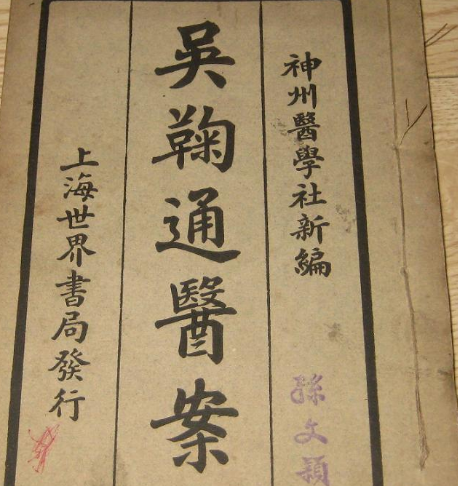 神州醫學社新編
孫文穎
吳鞠通醫案
上海世界書局發行